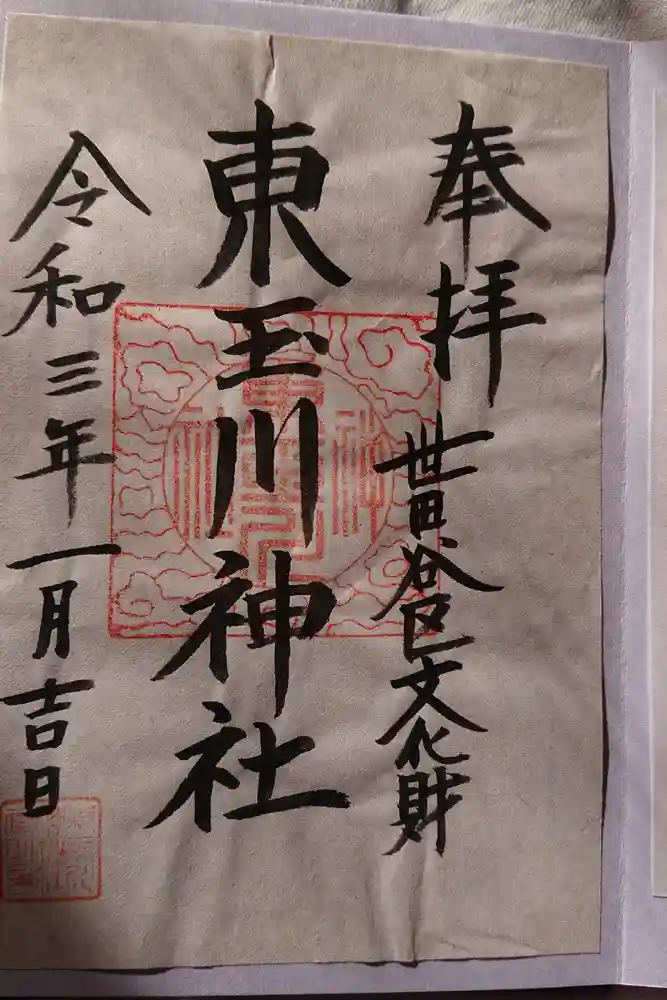 奉拝
世田谷区文化財
東玉川神社
令和三年一月吉日